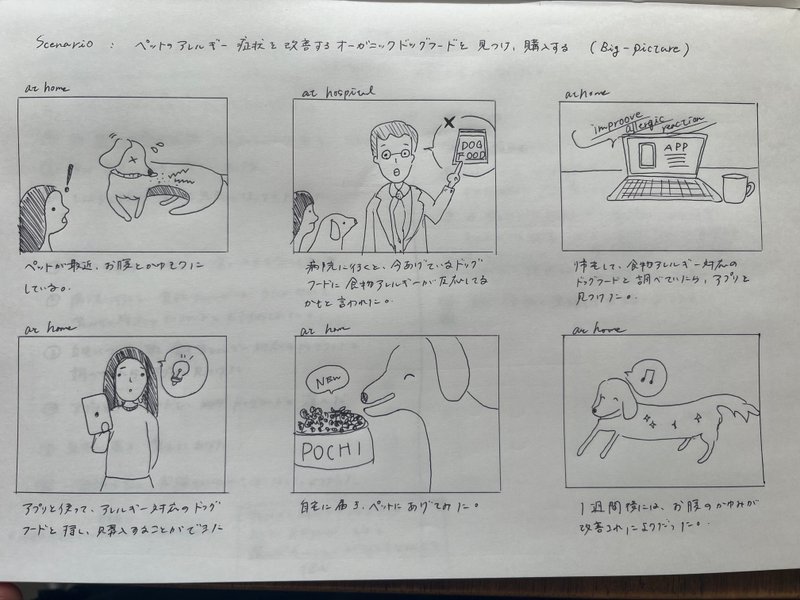 Scenario : ペットのアレルギー症状を改善するオーガニックドッグフードを見つけ、購入する (Big-picture)
at home
ペットが最近、お腹をかゆそうに
している。
at hospital
DOG
FOOD
病院に行くと、今あげているドッグ
フードに食物アレルギーが反応してる
かもと言われた。
at home
improove
allergic
reaction
APP
帰宅して、食物アレルギー対応の
ドッグフードを調べていたら、アプリを
見つけた。
at home
アプリを使って、アレルギー対応のドッグ
フードを探し、購入することができた
at hom
NEW
POCHI
自宅に届き、ペットにあげてみた。
at home
1週間後には、お腹のかゆみが
改善されたようだった。